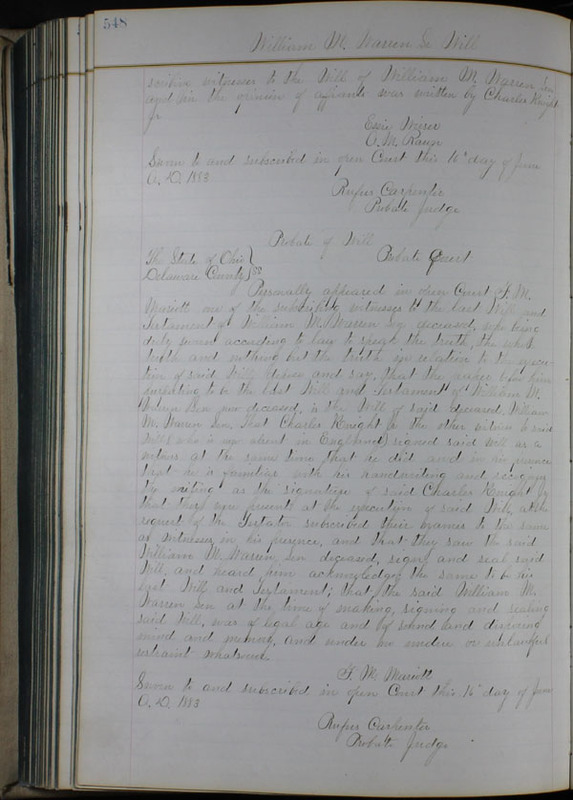 548
William M. Warren Sr Will
scribing witnesses to the Will of William M. Warren Sen
and in the opinion of affiants was written by Charles Knight
Jr
O. M.
Sworn to and subscribed in open Court this 16" day of June
A.D. 1883
Rufus Carpenter
Probate Judge
Probate of Will
The State of Ohio } Probate Court
Delaware County } SS
Personally appeared in open Court F. M.
Mariott one of the subscribing witnesses to the last Will and
Testament of William M. Warren Sen deceased, who being
duly sworn according to law to speak the truth, the whole
truth and nothing but the truth in relation to the execu-
tion of said Will, depose and say, that the paper before him
purporting to be the last Will and Testament of William M.
Warren Sen now deceased, is the Will of said deceased, William
M. Warren Sen. That Charles Knight Jr the other witness to said
Will (who is now absent in England) signed said Will as a
witness at the same time that he did and in his presence
that he is familiar with his handwriting and recognizes
the writing as the signature of said Charles Knight Jr
that they were present at the execution of said Will, at the
request of the Testator subscribed their names to the same
as witnesses in his presence, and that they saw the said
William M. Warren Sen deceased, sign and seal said
Will, and heard him acknowledge the same to be his
last Will and Testament; that the said William M.
Warren Sen at the time of making, signing and sealing
said Will, was of legal age and of sound and disposing
mind and memory, and under no undue or unlawful
restraint whatever.
F. M. Mariott
Sworn to and subscribed in open Court this 16" day of June
A.D. 1883
Rufus Carpenter
Probate Judge